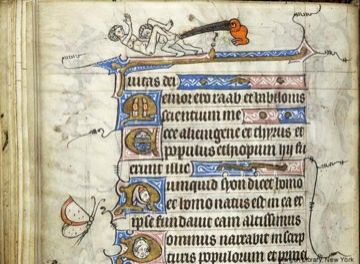 iuitas dei
Memor ero raab et babilonis
scientium me
Ecce alienigene et thyrus et
populus ethiopum hii fu
erunt illic
Numquid syon dicet homo
et homo natus est in ea et
ipse fundauit eam altissimus
Dominus narrabit in scrip
turis populorum et princi
Morgan Library, New York